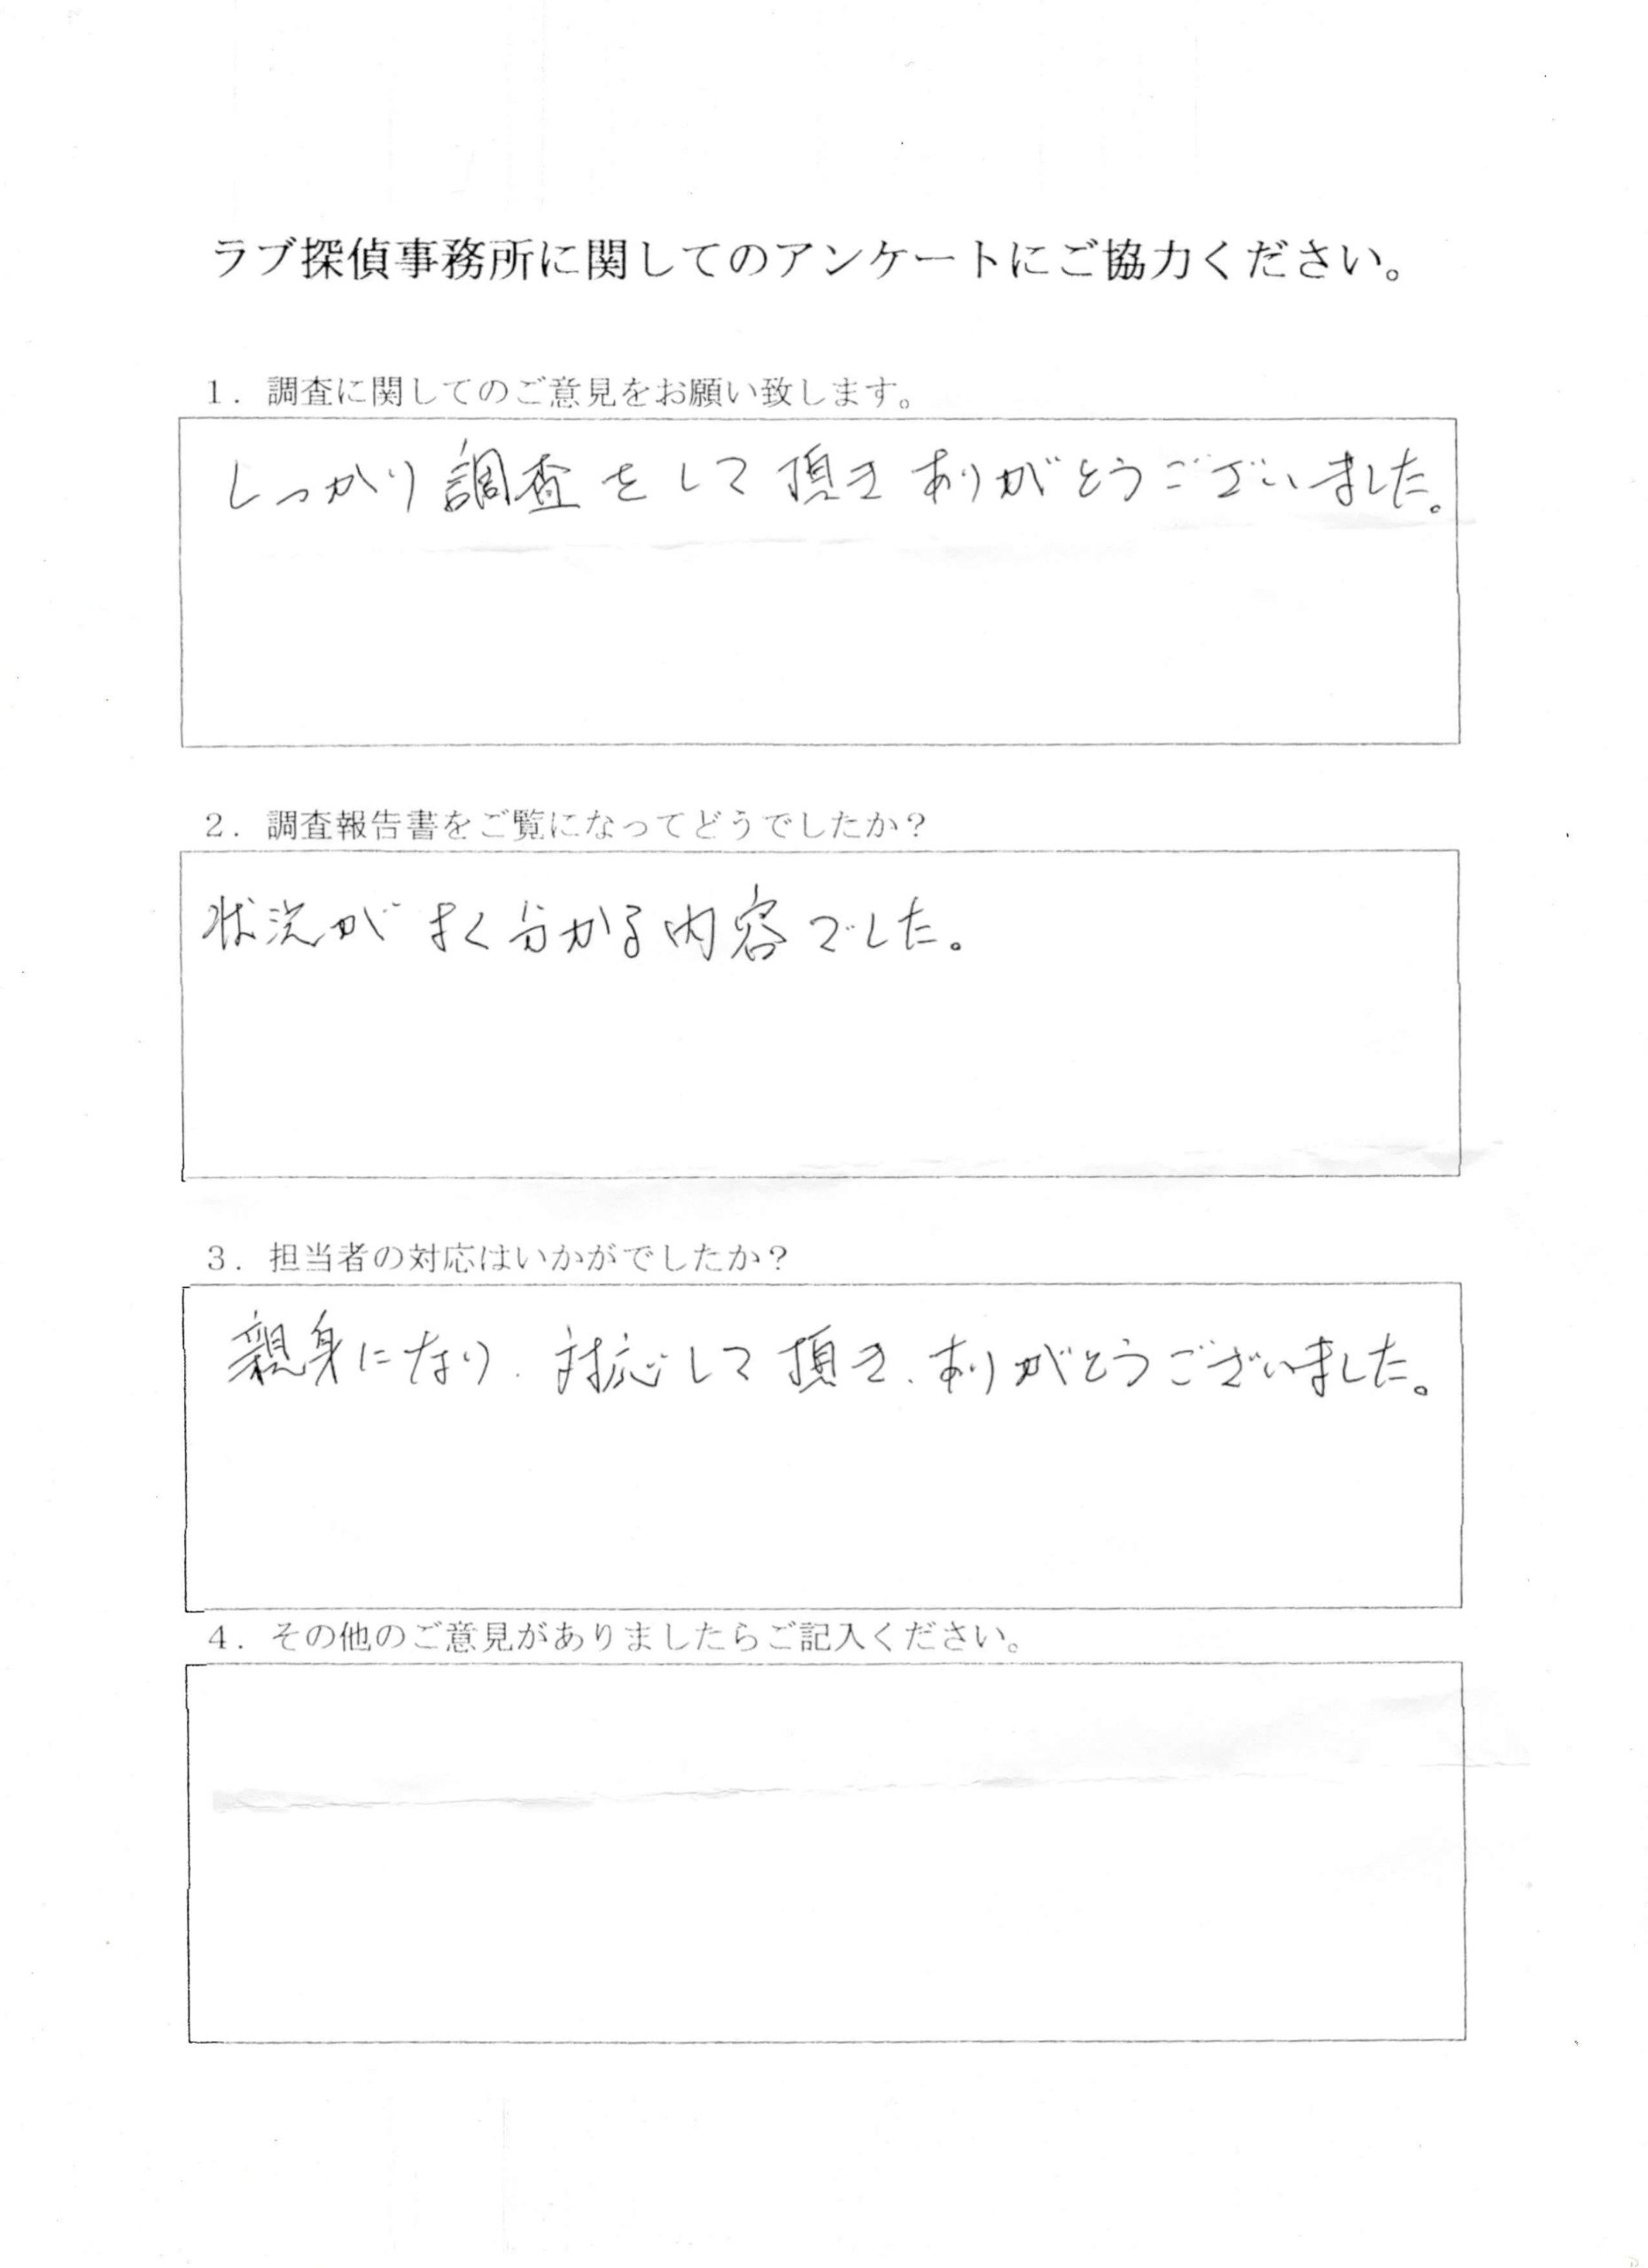 ラブ探偵事務所に関してのアンケートにご協力ください。
1．調査に関してのご意見をお願い致します。
しっかり調査をして頂きありがとうございました。
2．調査報告書をご覧になってどうでしたか？
状況がよく分かる内容でした。
3．担当者の対応はいかがでしたか？
親身になり、対応して頂き、ありがとうございました。
4．その他のご意見がありましたらご記入ください。